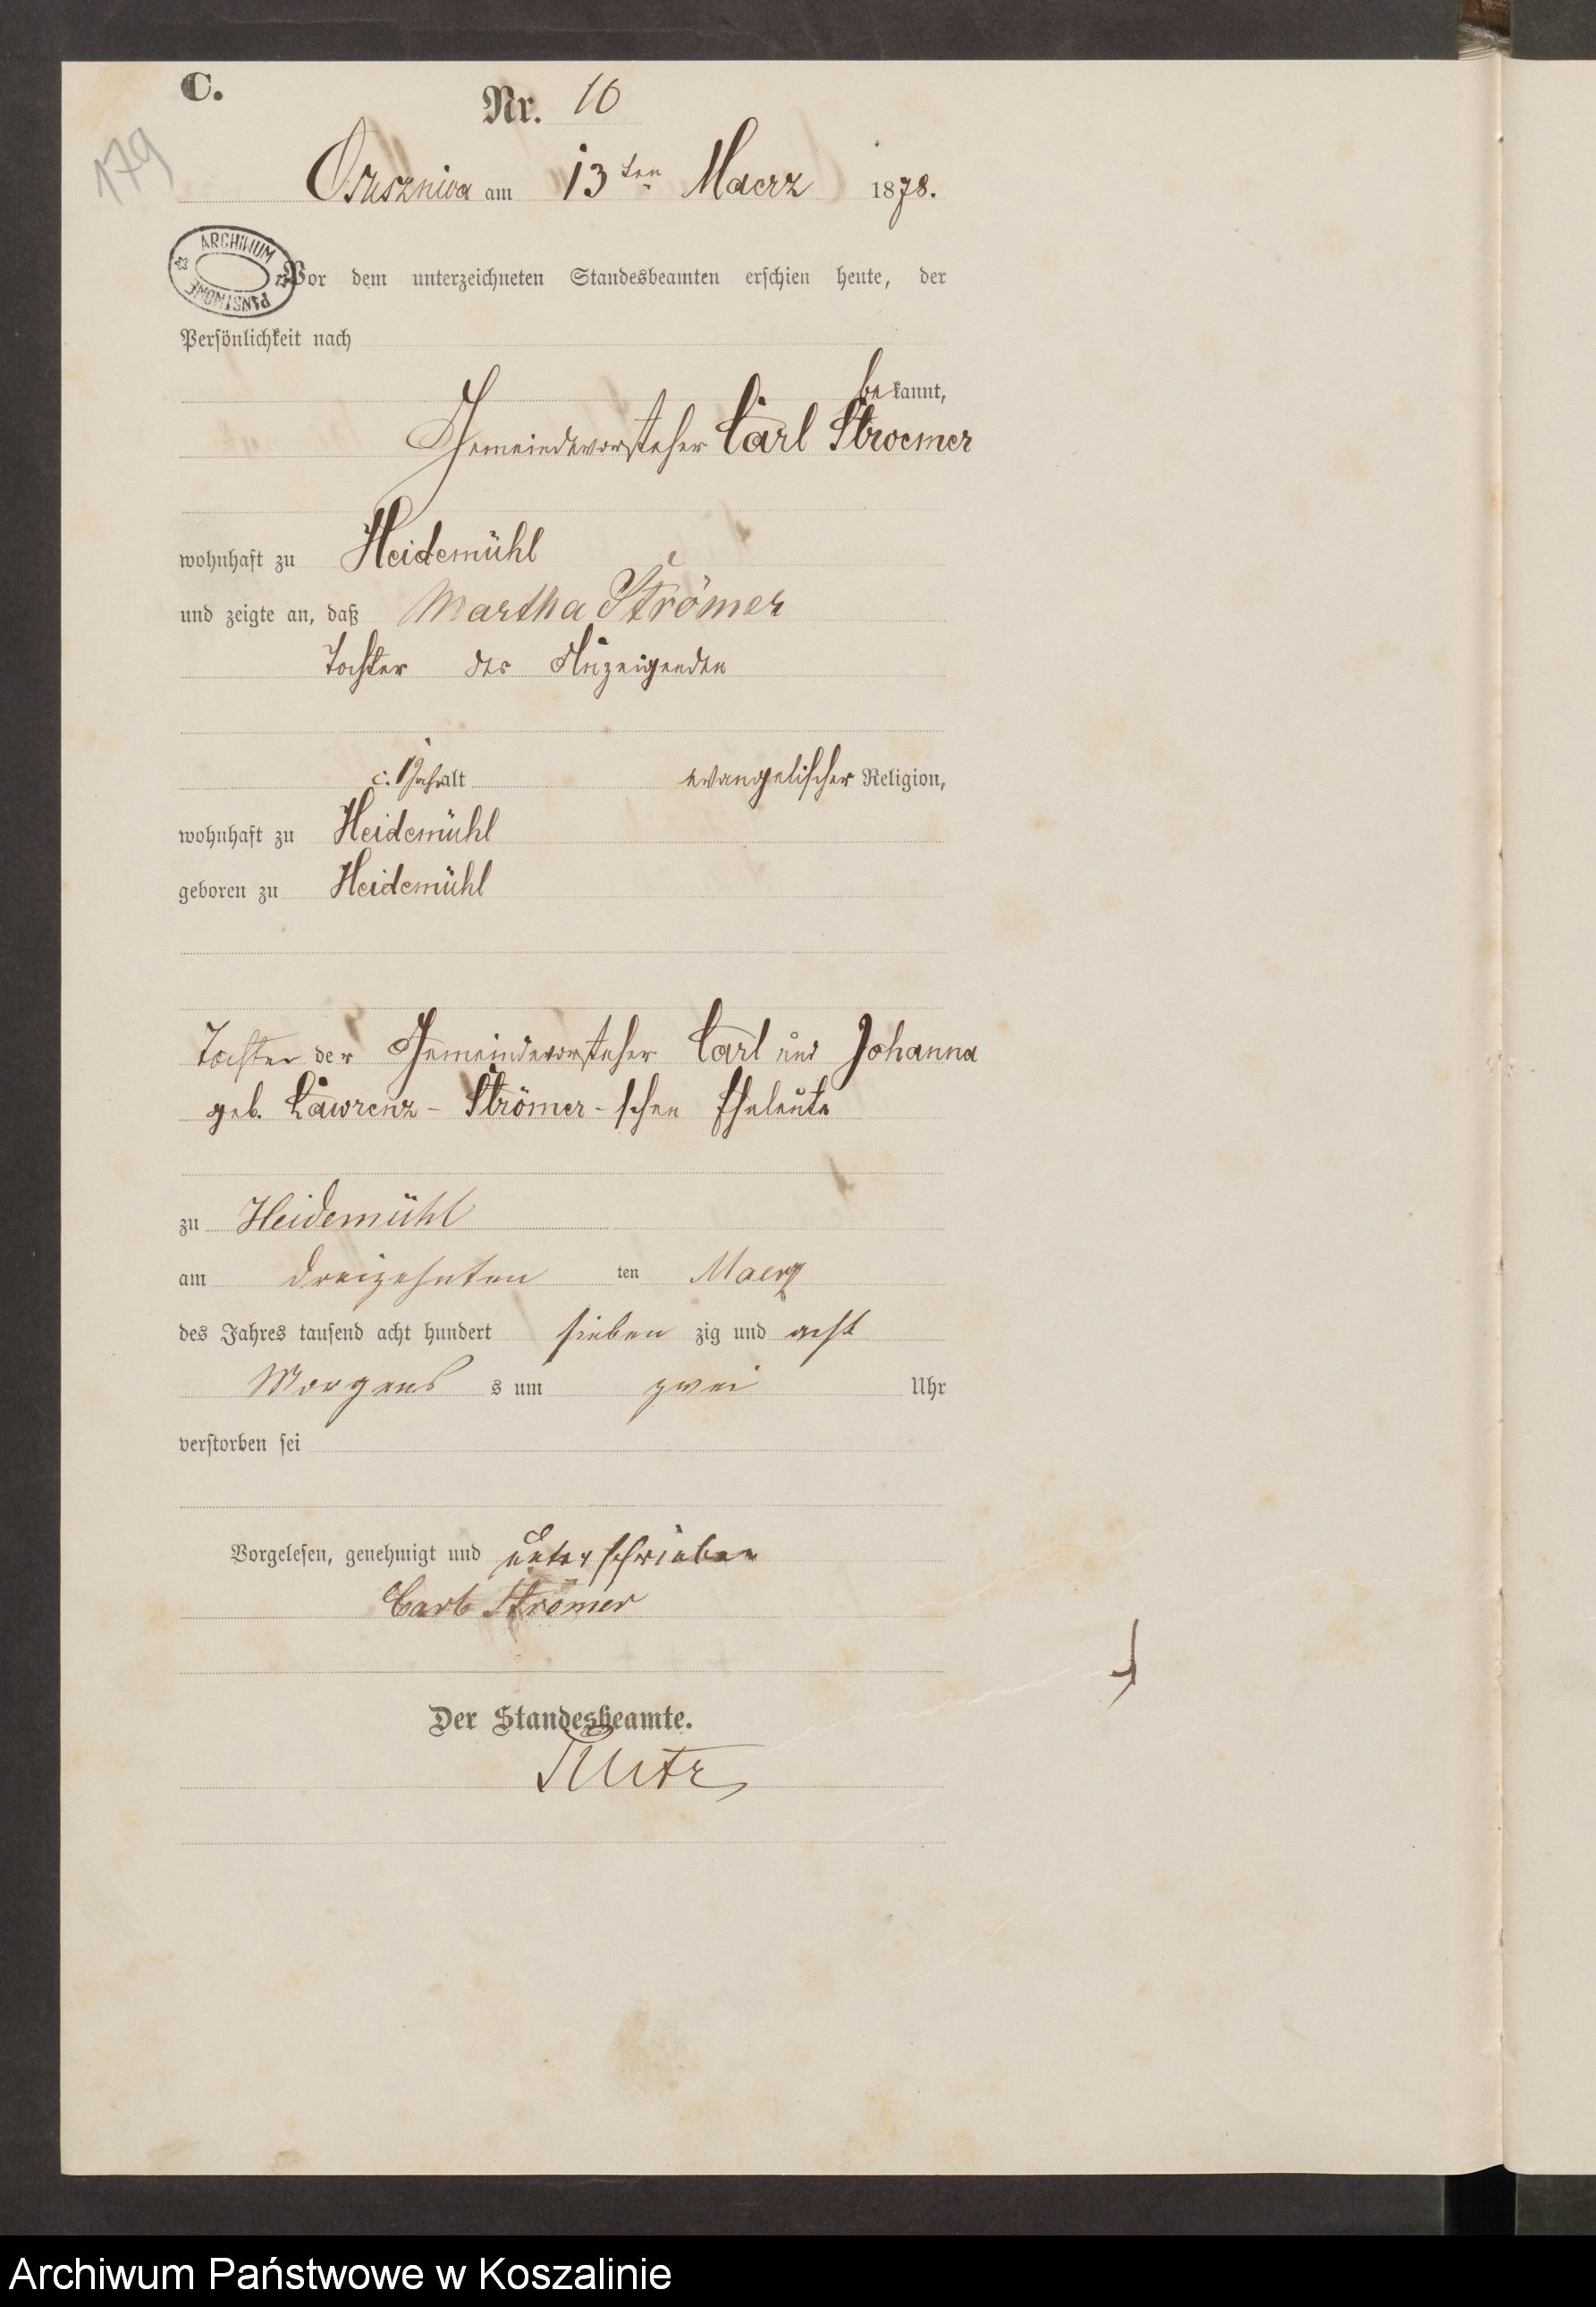 C.
Nr. 10
179
Osuszniça am 13ten Maerz 1878.
ARCHIWUM PAŃSTWOWE
Vor dem unterzeichneten Standesbeamten erschien heute, der
Persönlichkeit nach
be kannt,
Gemeindevorsteher Carl Stroemer
wohnhaft zu Heidemühl
und zeigte an, daß Martha Strömer
Tochter des Anzeigenden
c. Jahr alt evangelischer Religion,
wohnhaft zu Heidemühl
geboren zu Heidemühl
Tochter der Gemeindevorsteher Carl und Johanna
geb. Lawrenz - Strömer - schen Eheleute
zu Heidemühl
am dreizehnten ten Maerz
des Jahres tausend acht hundert sieben zig und acht
Morgens s um zwei Uhr
verstorben sei
Vorgelesen, genehmigt und unterschrieben
Carl Strömer
Der Standesbeamte.
Archiwum Państwowe w Koszalinie